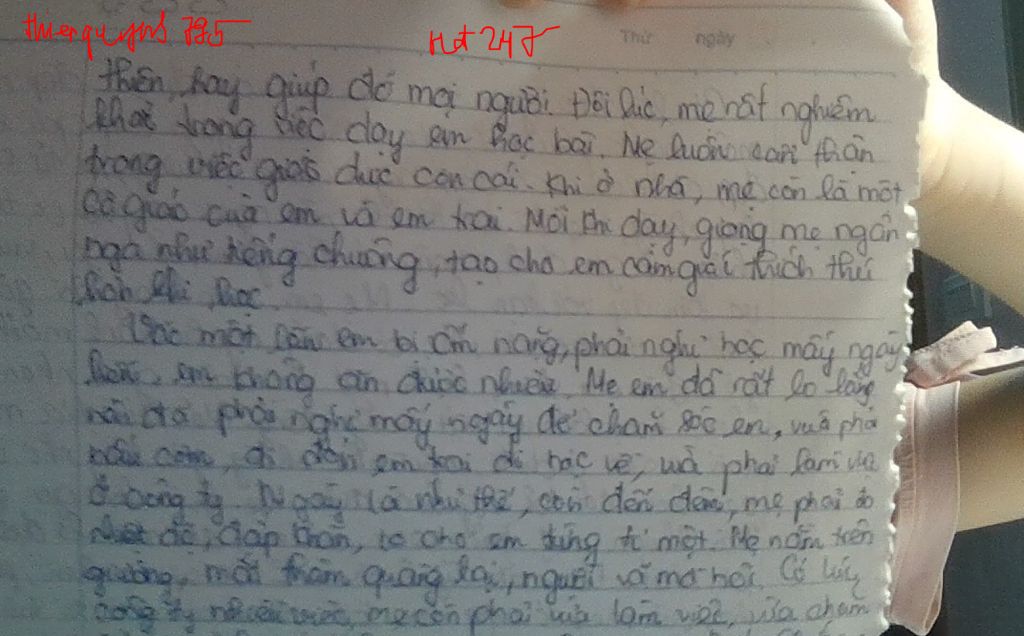 thienquynh 795
Hot 247
Thứ ngày
thiện, hay giúp đỡ mọi người. Đôi lúc, mẹ rất nghiêm
khắc trong việc dạy em học bài. Mẹ luôn cẩn thận
trong việc giáo dục con cái. Khi ở nhà, mẹ còn là một
cô giáo của em và em trai. Mỗi khi dạy, giọng mẹ ngân
nga như tiếng chuông, tạo cho em cảm giác thích thú
hơn khi học
Có một lần em bị ốm nặng, phải nghỉ học mấy ngày
liền, em không ăn được nhiều. Mẹ em đã rất lo lắng
nên đã phải nghỉ mấy ngày để chăm sóc em, vừa phải
nấu cơm, đi đón em trai đi học về, và phải làm việc
ở công ty. Ngày là như thế, còn đến đêm, mẹ phải đo
nhiệt độ, đắp chăn, lo cho em từng tí một. Mẹ nằm trên
giường, mắt thâm quầng lại, người vã mồ hôi. Có lúc,
công ty mẹ còn phải vừa làm việc, vừa chăm